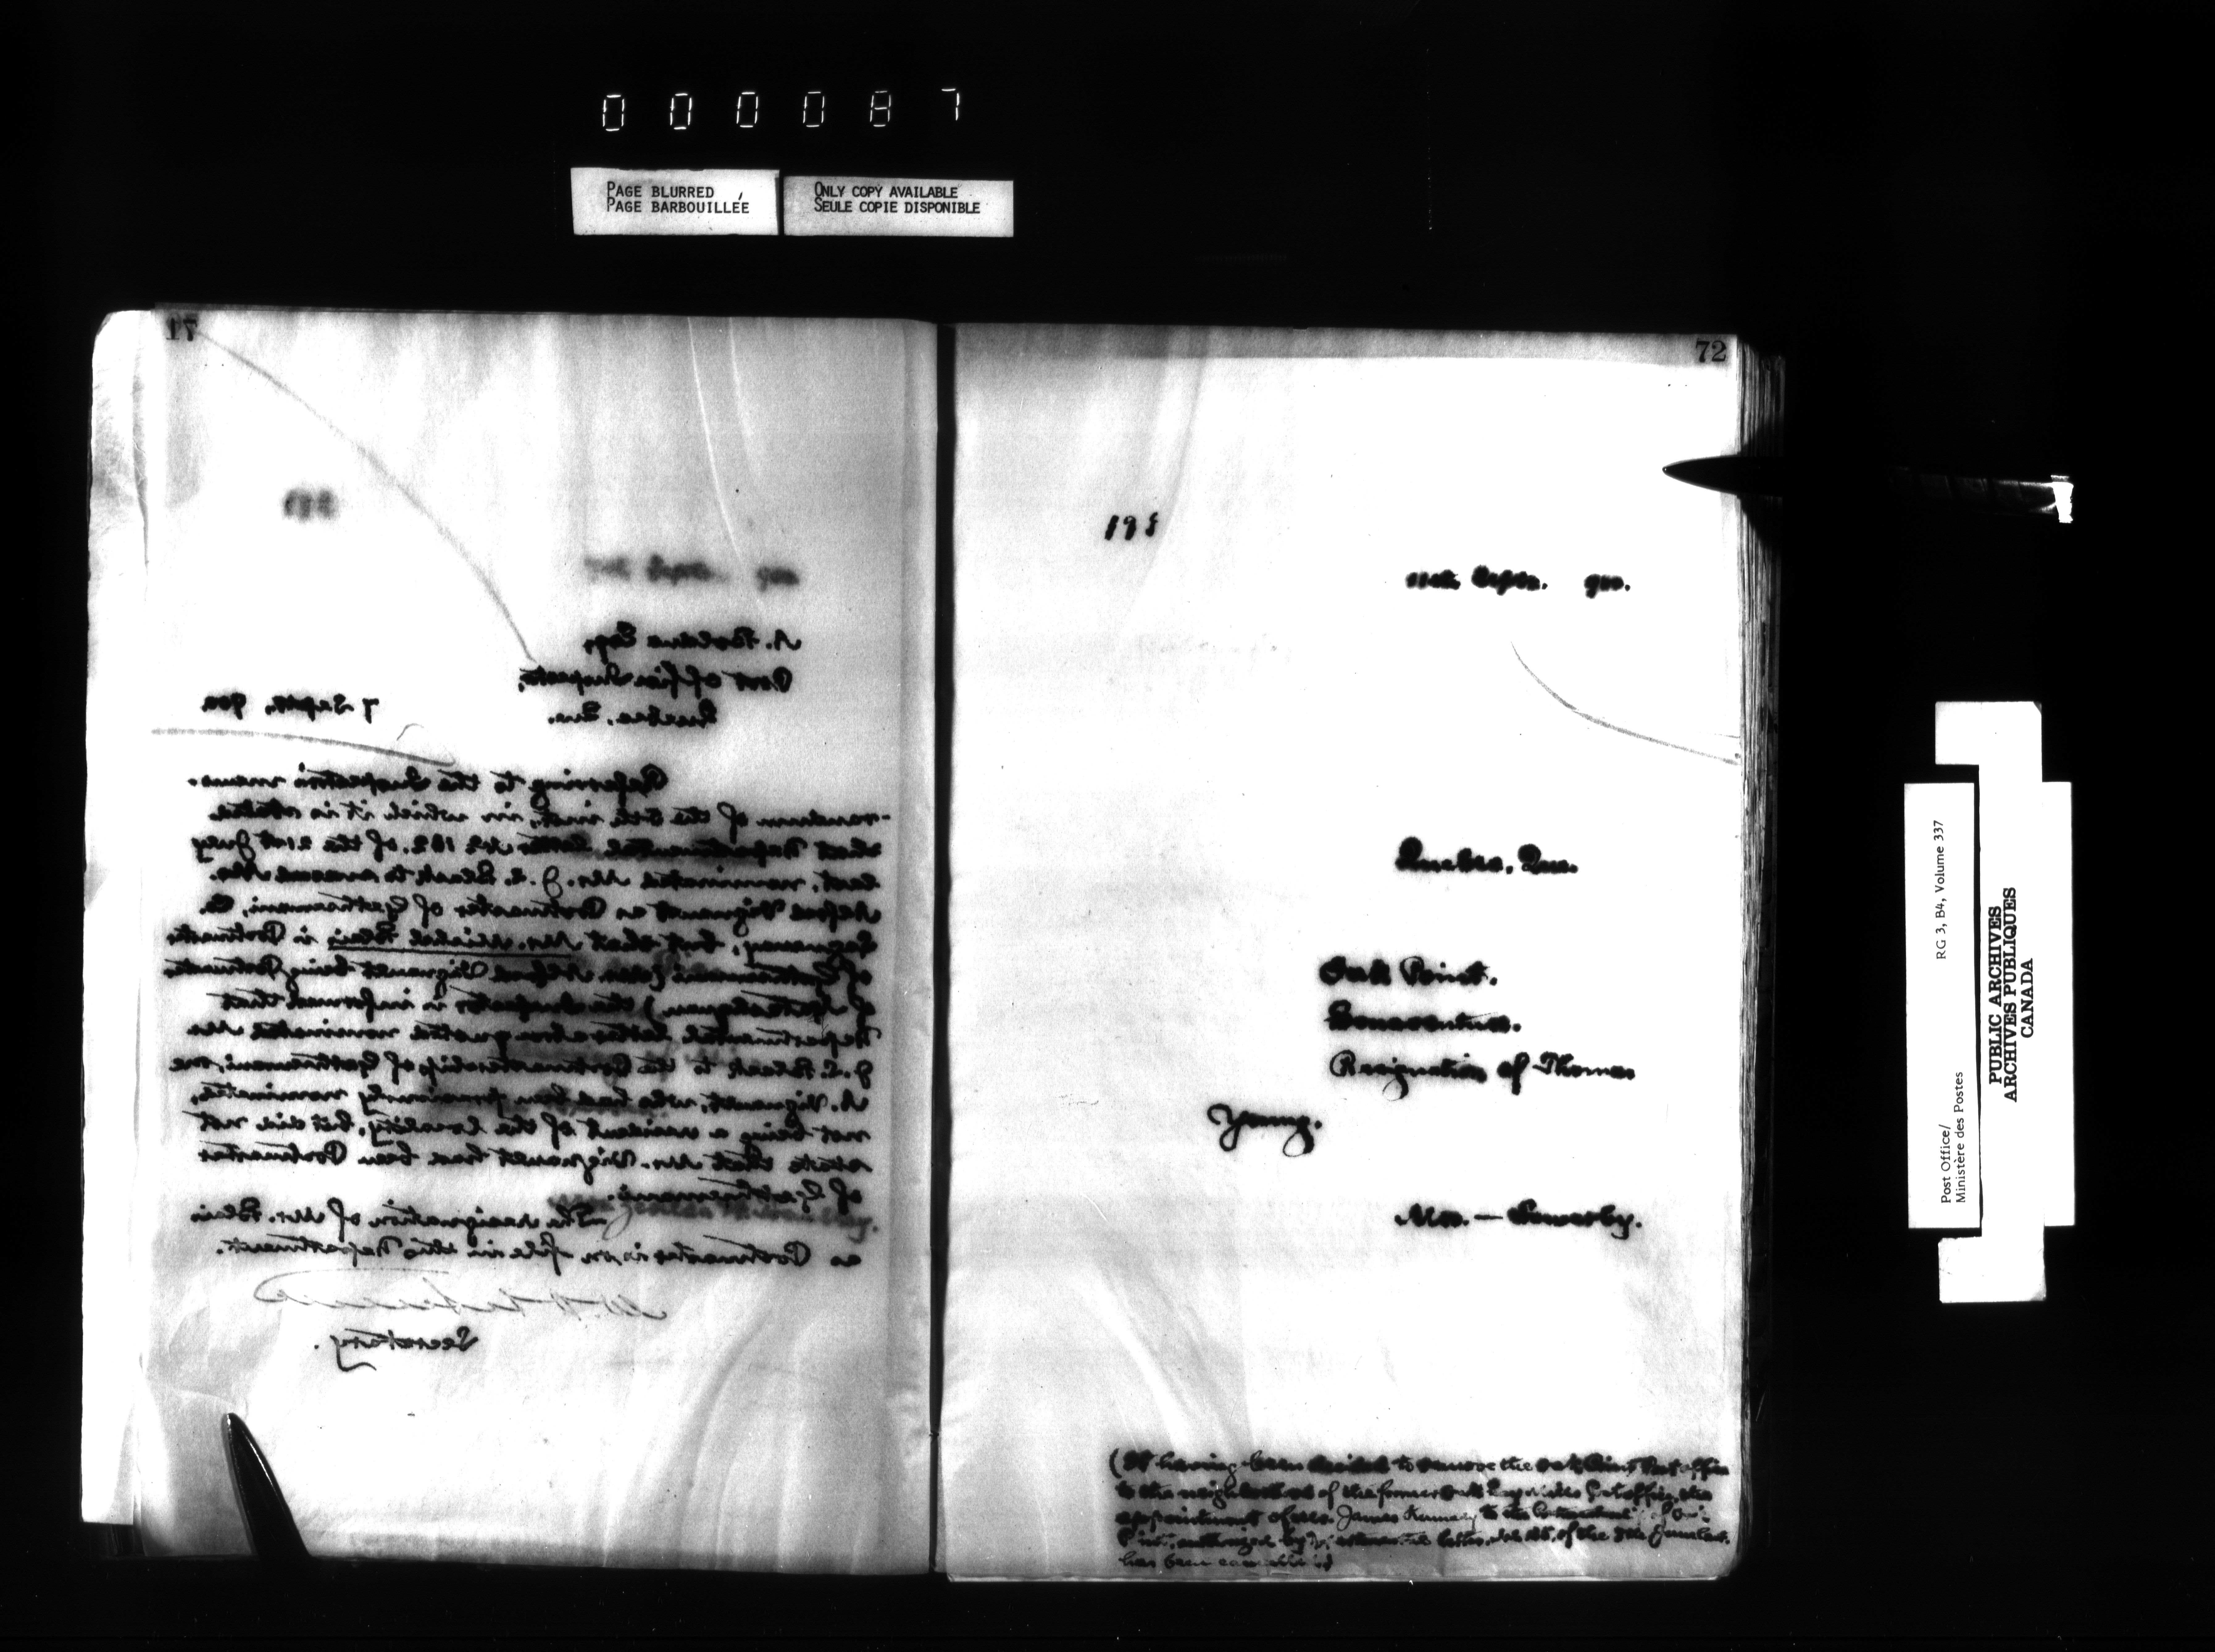 000087
PAGE BLURRED
PAGE BARBOUILLÉE
ONLY COPY AVAILABLE
SEULE COPIE DISPONIBLE
71
7 Septr, 900
Post Office Inspector,
Quebec, Que.
Referring to the Inspector's memo-
-randum of the 5th inst, in which it is stated
that Departmental Letter No 182. of the 21st July
last, nominated Mr. J. S. Black to succeed Mr.
Alfred Vignault as Postmaster of Gethsemani, Co.
Saguenay, but that Mr. Michel Blais is Postmaster
of Gethsemani (Alfred Vignault being Postmaster
of ) the Inspector is informed that
Departmental letter above quoted nominated Mr
J. S. Black to the Postmastership of Gethsemani, vice
A. Vignault, who had been previously nominated,
not being a resident of the locality, but did not
state that Mr. Vignault had been Postmaster
of Gethsemani.
The resignation of Mr. Blais
as Postmaster is on file in this Department.
Secretary.
72
198
11th Septr. 900.
Quebec, Que.
Oak Point.
Bonaventure.
Resignation of Thomas
Young.
Mrs. — Sowerby.
(It having been decided to remove the Oak Point Post office
to the neighborhood of the former Oak Bay Mills Post office, the
appointment of Mr. James Kennedy to the
Point, authorized by letter of the 5th
has been cancelled)
Post Office/
Ministère des Postes
RG 3, B4, Volume 337
PUBLIC ARCHIVES
ARCHIVES PUBLIQUES
CANADA